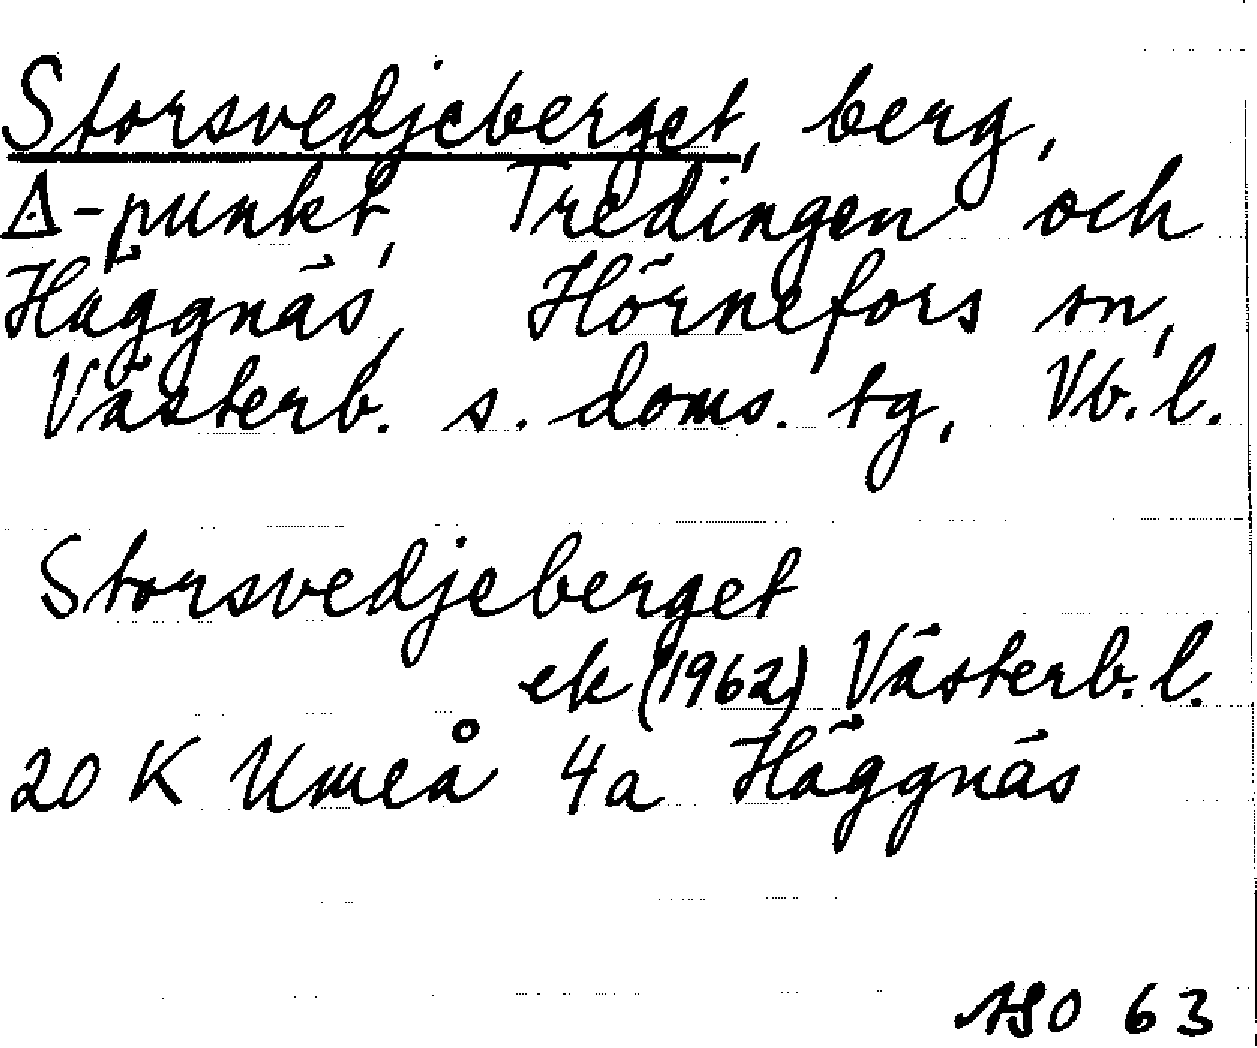 Storsvedjeberget, berg,
∆-punkt, Tredingen och
Häggnäs, Hörnefors sn,
Västerb. s. doms. tg, Vb. l.
Storsvedjeberget
ek (1962) Västerb. l.
20 K Umeå 4a Häggnäs
63